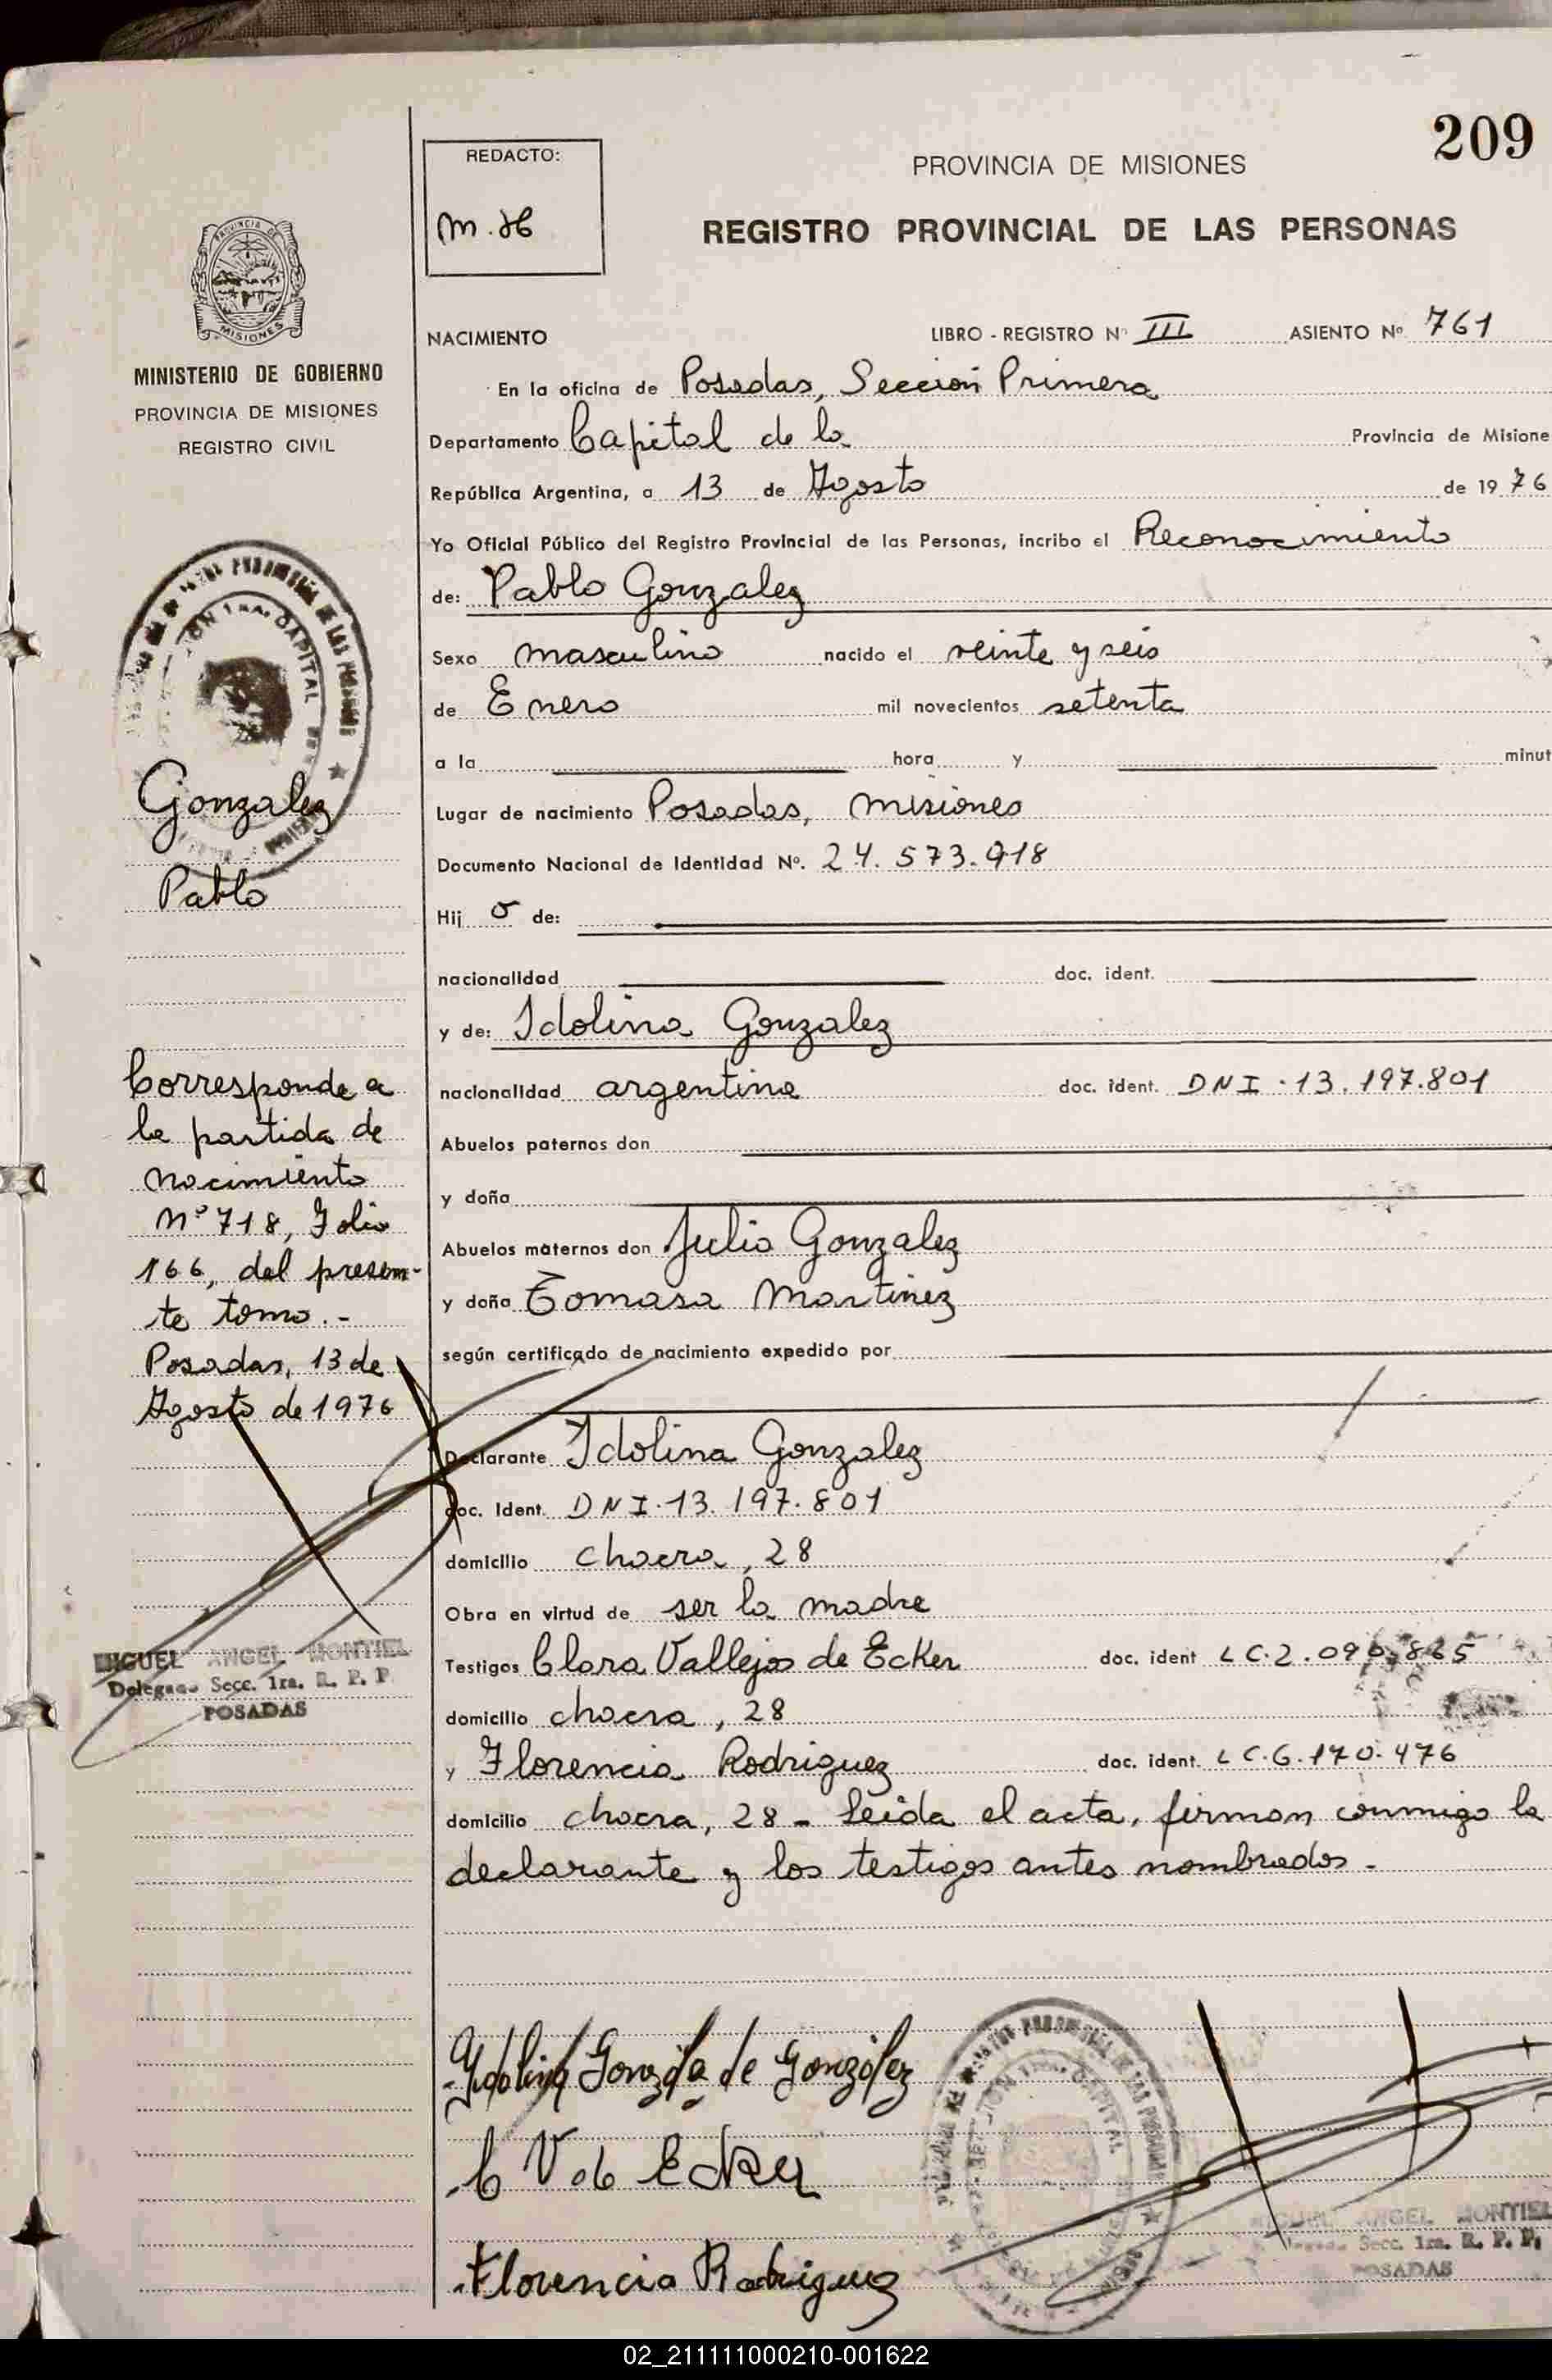 209
REDACTO:
M.H
PROVINCIA DE MISIONES
REGISTRO PROVINCIAL DE LAS PERSONAS
MINISTERIO DE GOBIERNO
PROVINCIA DE MISIONES
REGISTRO CIVIL
Gonzalez
Pablo
Corresponde a
la partida de
nacimiento
Nº 718, Folio
166, del presen-
te tomo.-
Posadas, 13 de
Agosto de 1976
MIGUEL ANGEL MONTIEL
Delegado Secc. 1ra. R. P. P.
POSADAS
NACIMIENTO LIBRO - REGISTRO Nº III ASIENTO Nº 761
En la oficina de Posadas, Sección Primera
Departamento Capital de la Provincia de Misione
República Argentina, a 13 de Agosto de 1976
Yo Oficial Público del Registro Provincial de las Personas, incribo el Reconocimiento
de: Pablo Gonzalez
Sexo masculino nacido el veinte y seis
de Enero mil novecientos setenta
a la hora y minut
Lugar de nacimiento Posadas, Misiones
Documento Nacional de Identidad Nº. 24.573.918
Hij o de:
nacionalidad doc. ident.
y de: Idolina Gonzalez
nacionalidad argentina doc. ident. DNI.13.197.801
Abuelos paternos don
y doña
Abuelos maternos don Julio Gonzalez
y doña Tomasa Martinez
según certificado de nacimiento expedido por
Declarante Idolina Gonzalez
doc. Ident. DNI.13.197.801
domicilio chacra, 28
Obra en virtud de ser la madre
Testigos Clara Vallejos de Ecker doc. ident LC.2.096.865
domicilio chacra, 28
y Florencia Rodriguez doc. ident. LC.6.170.476
domicilio chacra, 28 - Leida el acta, firman conmigo la
declarante y los testigos antes nombrados.-
Idolina Gonzále de González
C V de Ecker
Florencia Rodriguez
MIGUEL ANGEL MONTIEL
Delegado Secc. 1ra. R. P. P.
POSADAS
02_211111000210-001622